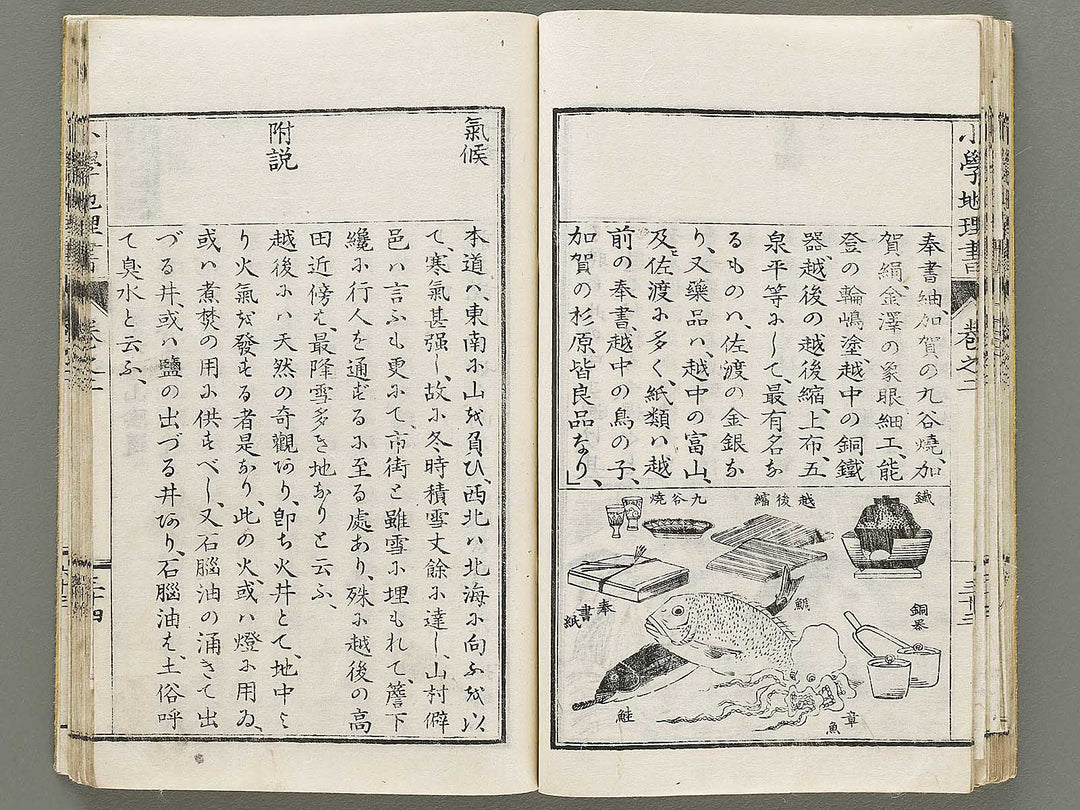 小學地理書
卷之二
三十三
奉書紬、加賀の九谷燒、加
賀絹金澤の象眼細工、能
登の輪嶋塗越中の銅鐵
器、越後の越後縮、上布、五
泉平等ふして、最有名な
るものハ、佐渡の金銀な
り、又藥品ハ、越中の富山、
及佐渡ふ多く、紙類ハ越
前の奉書、越中の鳥の子、
加賀の杉原皆良品なり、
鐵
越後縮
九谷燒
奉書紙
鯛
銅器
鮭
章魚
氣候
本道ハ、東南ふ山を負ひ、西北ハ北海ふ向ふを以
て、寒氣甚强し、故ふ冬時積雪丈餘ふ達し、山村僻
邑ハ言ふも更ふて、市街と雖雪ふ埋もれて、簷下
纔ふ行人を通ずるふ至る處あり、殊ふ越後の高
田近傍は、最降雪多き地なりと云ふ、
附説
越後ふハ天然の奇觀あり、卽ち火井とて、地中よ
り火氣を發する者是なり、此の火或ハ燈ふ用ゐ、
或ハ煮焚の用ふ供すべし、又石腦油の涌きて出
づる井、或ハ鹽の出づる井あり、石腦油は、土俗呼
て臭水と云ふ、
小學地理書
卷之二
三十四